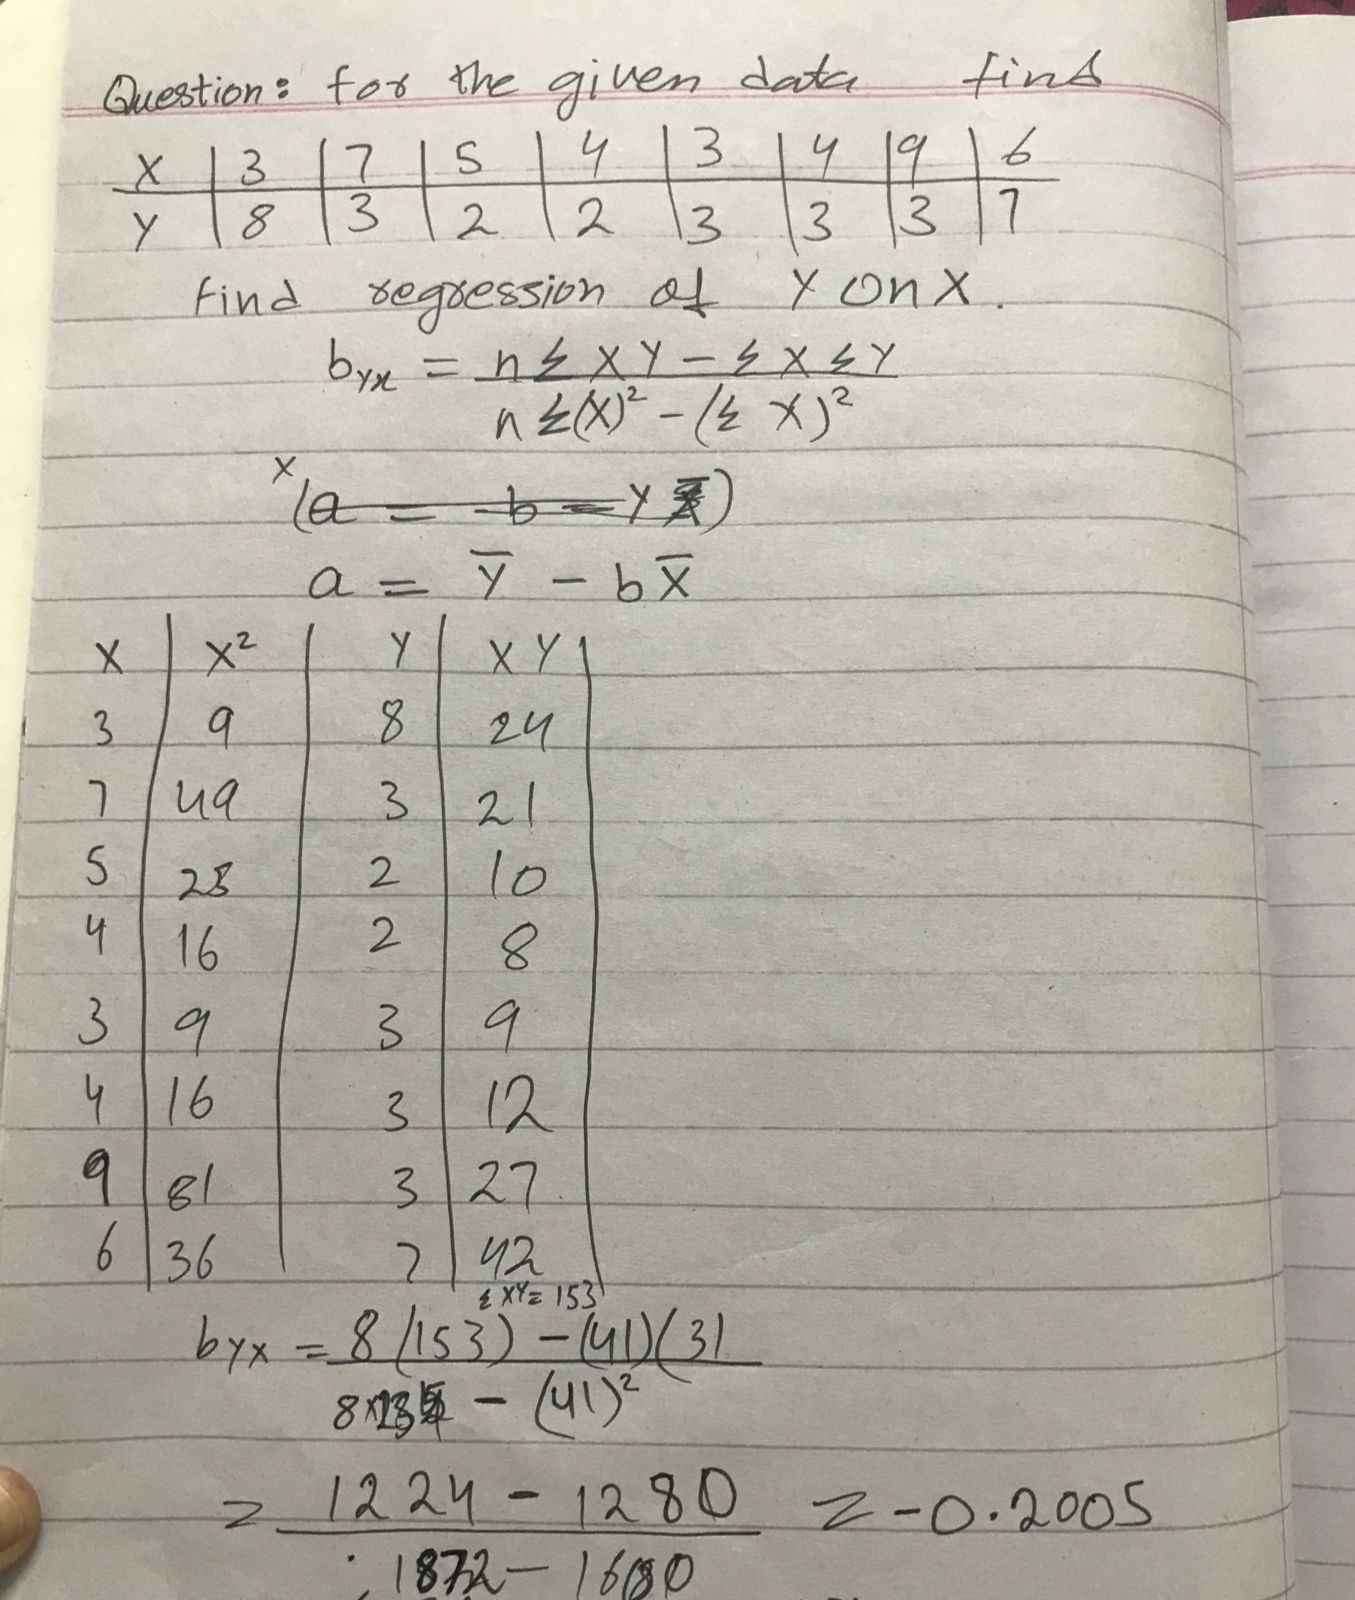 Question: for the given data find
X | 3 | 7 | 5 | 4 | 3 | 4 | 9 | 6
Y | 8 | 3 | 2 | 2 | 3 | 3 | 3 | 7
Find regression of Y on X.
bYx = n Σ XY - Σ X Σ Y
n Σ(X)² - (Σ X)²
x (a = b = Y )
a = Y̅ - b X̅
X | X² | Y | XY
3 | 9 | 8 | 24
7 | 49 | 3 | 21
5 | | 2 | 10
4 | 16 | 2 | 8
3 | 9 | 3 | 9
4 | 16 | 3 | 12
9 | 81 | 3 | 27
6 | 36 | 7 | 42
Σ XY = 153
bYX = 8 (153) - (41)(31
8× - (41)²
= 1224 - 1280 = -0.2005
1872 - 1680